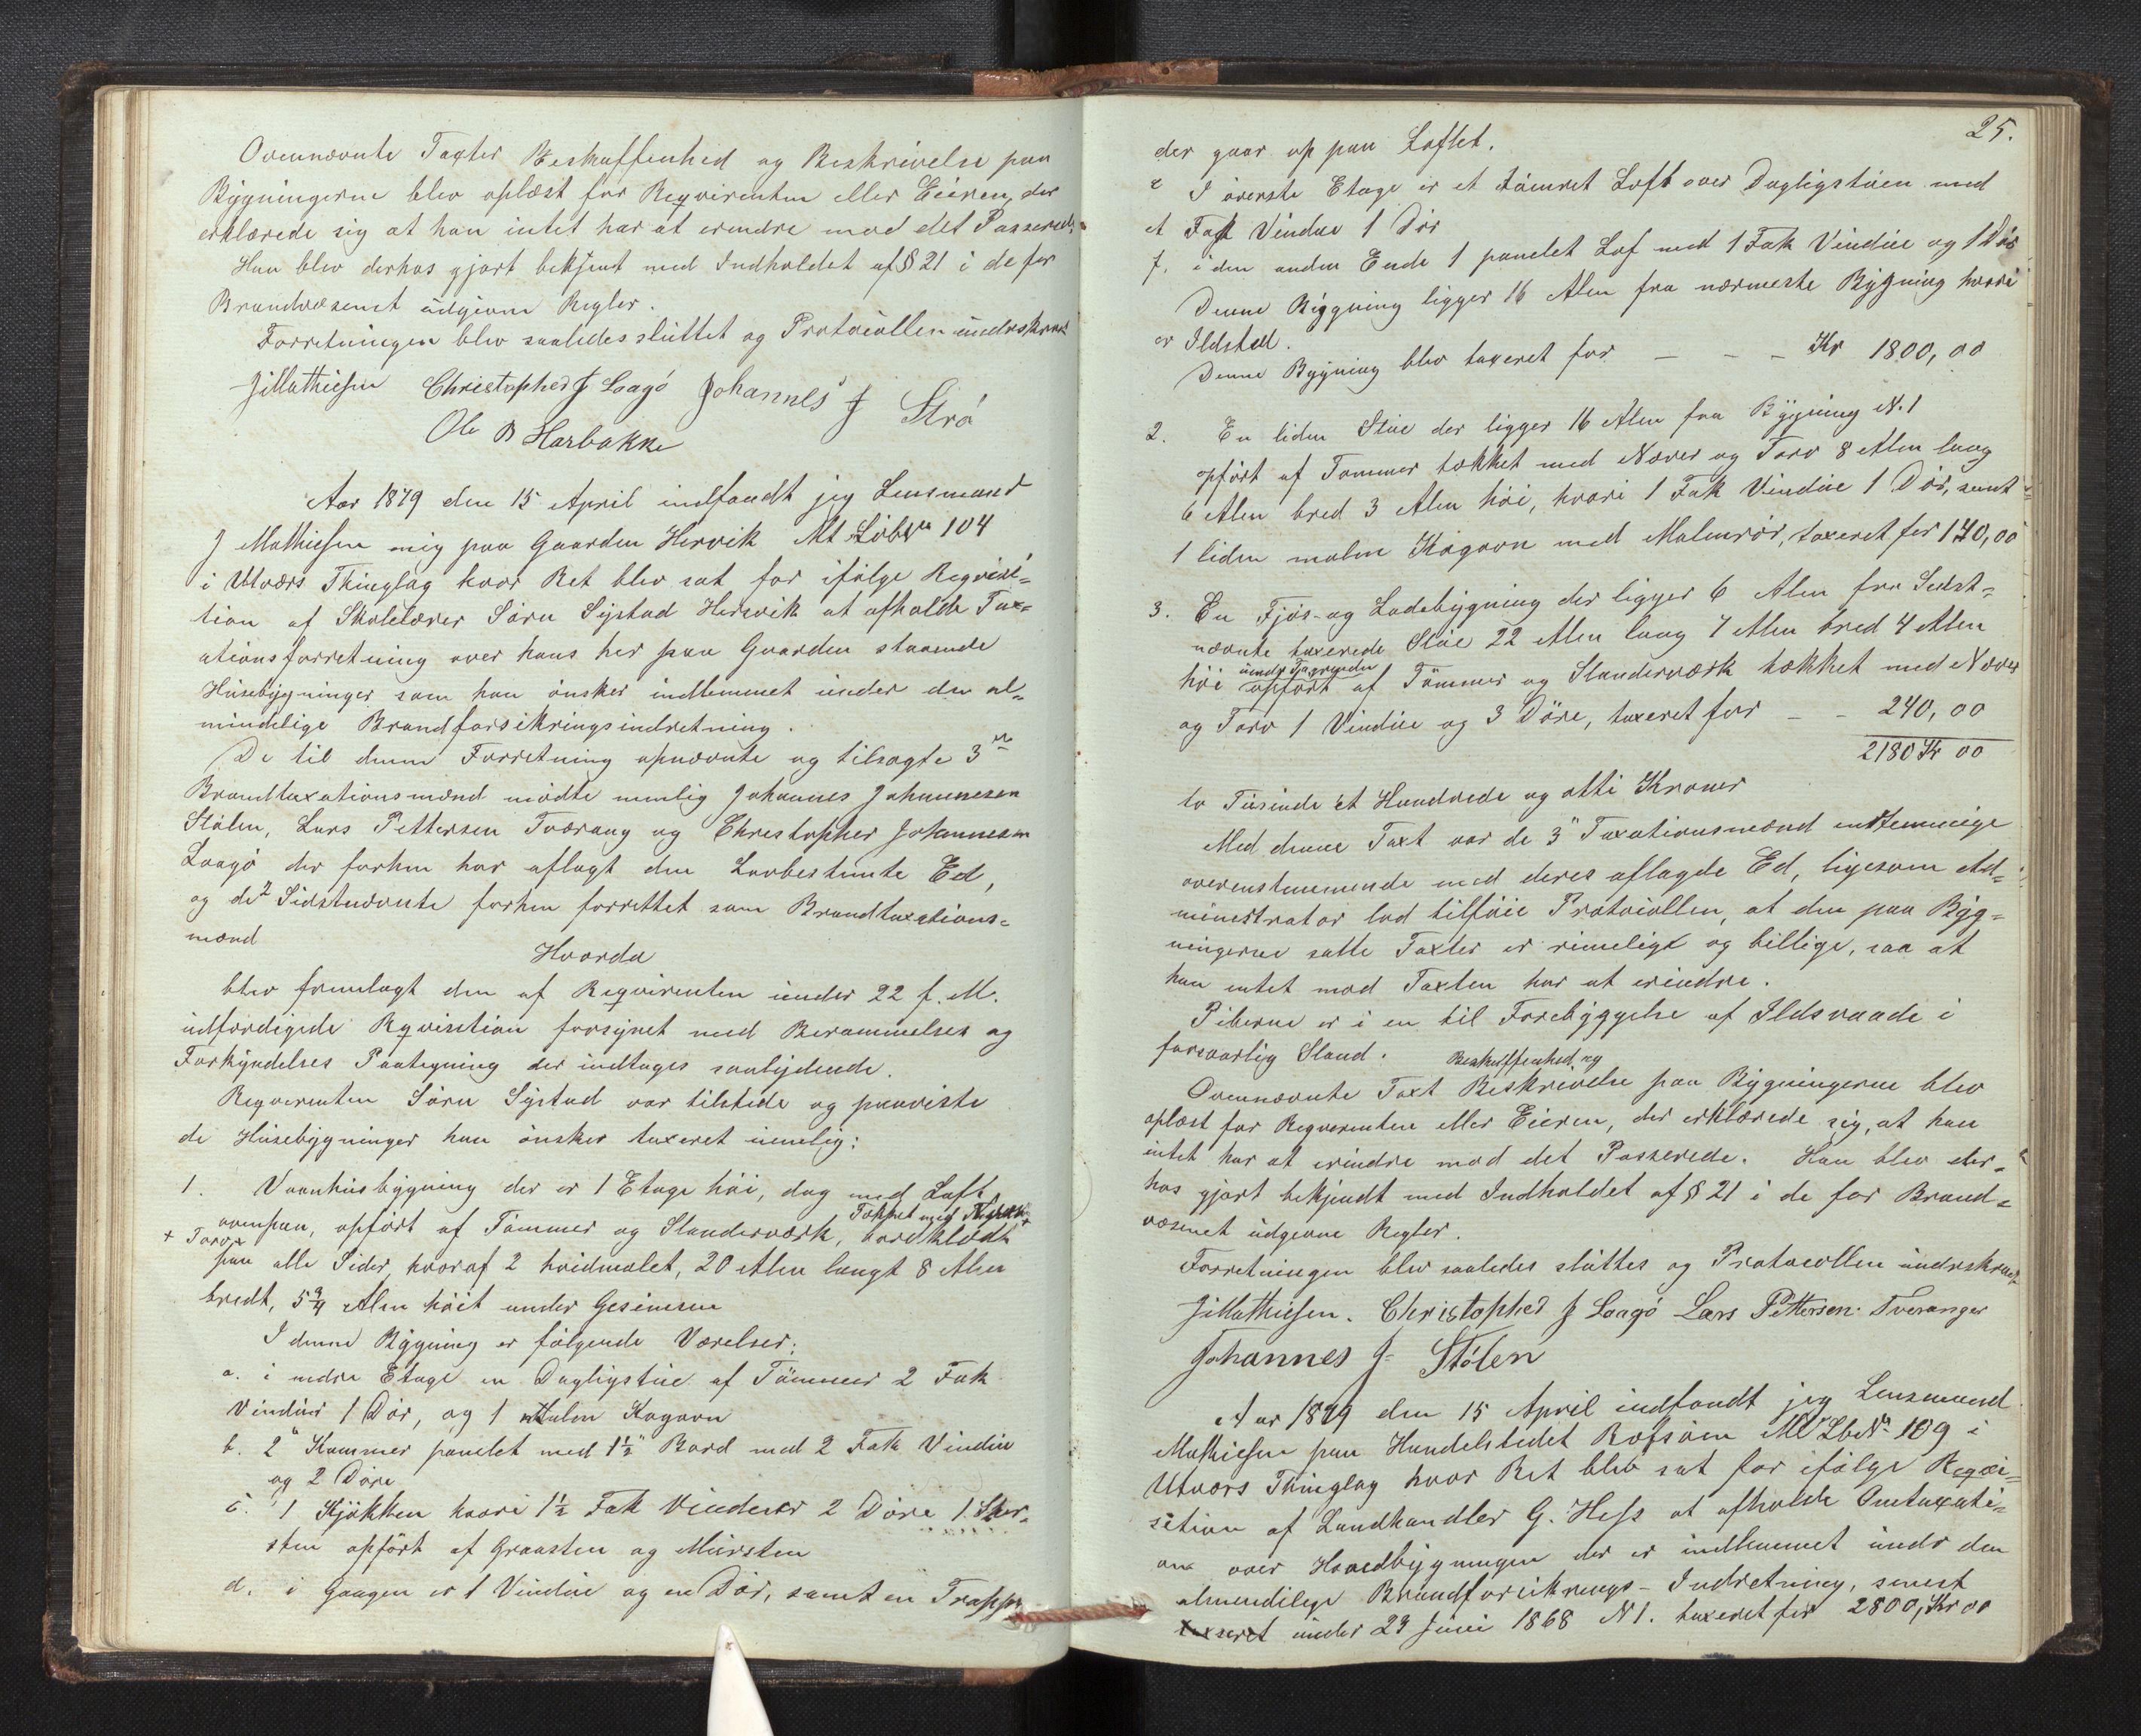 Ovennævnte Taxter Beskaffenhed og Beskrivelse paa
Bygningerne blev oplæst for Reqvirenten eller Eieren, der
erklærede sig at han intet har at erindre mod det Passerede.
Han blev derhos gjort bekjent med Indholdet af § 21 i de for
Brandvæsenet udgivne Regler.
Forretningen blev saaledes sluttet og Protocollen underskrevet
JMathiesen Christopher J Laagö Johannes J Strö
Ole B Harbakke
Aar 1879 den 15 April indfandt jeg Lensmand
J Mathiesen mig paa Gaarden Hersvik Mt Löbn 104
i Utvær Thinglag hvor Ret blev sat for ifölge Reqvisi=
tion af Skolelærer Sörn Systad Hersvik at afholde Tax=
ationsforretning over hans her paa Gaarden staaende
Husebygninger som han önsker indlemmet under den al=
mindelige Brandforsikringsindretning.
De til denne Forretning opnævnte og tilsagte 3de
Brandtaxationsmænd mödte nemlig Johannes Johannesen
Stölen, Lars Pettersen Tværang og Christopher Johannesen
Laagö der forhen har aflagt den Lovbestemte Ed,
og de 2 Sidstnævnte forhen forrettet som Brandtaxations=
mænd
Hvorda
blev fremlagt den af Reqvirenten under 22 f. M.
udfærdigede Reqvisition forsynet med Berammelses og
Forkyndelses Paategning der indtages saalydende.
Reqvirenten Sörn Systad var tilstede og paaviste
de Husebygninger han önsker taxeret nemlig:
1. Vaanhusbygning der er 1 Etage höi, dog med Loft
Tækket med Næver +
ovenpaa, opfört af Tömmer og Standerværk, bordklædt
+ Torv +
paa alle Sider, hvoraf 2 hvidmalet, 20 Alen langt 8 Alen
bredt, 5 3/4 Alen höit under Gesimsen
I denne Bygning er fölgende Værelser:
a. i nedre Etage en Dagligstue af Tömmer 2 Fak
Vinduer 1 Dör, og 1 Malm Kogovn
b. 2 Kammer panelet med 1 1/2" Bord med 2 Fak Vindue
og 2 Döre
c. 1 Kjökken hvori 1 1/2 Fak Vinduer 2 Döre 1 Skor=
sten opfört af Graasten og Mursten
d. i Gangen er 1 Vindue og en Dör, samt en Trappe
25.
der gaar op paa Loftet.
e I överste Etage er et tömret Loft over Dagligstuen med
et Fak Vindue 1 Dör
f. i den anden Ende 1 panelet Lof med 1 Fak Vindue og 1 Dör
Denne Bygning ligger 16 Alen fra nærmeste Bygning hvori
er Ildsted.
Denne Bygning blev taxeret for – – – Kr 1800,00
2. En liden Stue der ligger 16 Alen fra Bygning N. 1
opfört af Tömmer tækket med Næver og Torv 8 Alen lang
6 Alen bred 3 Alen höi, hvori 1 Fak Vindue 1 Dör, samt
1 liden malm Kogovn med Malmrör, taxeret for 140,00
3. En Fjös- og Ladebygning der ligger 6 Alen fra Sidst=
nævnte taxerede Stue 22 Alen lang 7 Alen bred 4 Alen
under Tagrenden
höi opfört af Tömmer og Standerværk tækket med Næver
og Torv 1 Vindue og 3 Döre, taxeret for – – 240,00
2180 Kr 00
to Tusinde et Hundrede og otti Kroner
Med denne Taxt var de 3 Taxationsmænd enstemmige
overenstemmende med deres aflagde Ed, ligesom Ad=
ministrator lod tilföie Protocollen, at den paa Byg=
ningerne satte Taxter er rimeligt og billige, saa at
han intet mod Taxten har at erindre.
Piberne er i en til Forebyggelse af Ildsvaade i
forsvarlig Stand.
Beskaffenhed og
Ovennævnte Taxt Beskrivelse paa Bygningerne blev
oplæst for Reqvirenten eller Eieren, der erklærede sig, at han
intet har at erindre mod det Passerede. Han blev der=
hos gjort bekjendt med Indholdet af § 21 i de for Brand=
væsenet udgivne Regler.
Forretningen blev saaledes sluttes og Protocollen underskrevet
JMathiesen. Christopher J Laagö Lars Pettersen Tveranger
Johannes J Stölen
Aar 1879 den 15 April indfandt jeg Lensmand
Mathiesen paa Handelstedet Rofsöen Mt LbN 109 i
Utvær Thinglag hvor Ret blev sat for ifölge Reqvi=
sition af Landhandler G. Hess at afholde Omtaxati=
on over Hovedbygningen der er indlemmet under den
almindelige Brandforsikrings-Indretning, senest
taxeret under 23 Juni 1868 N 1. taxeret for 2800, Kr 00